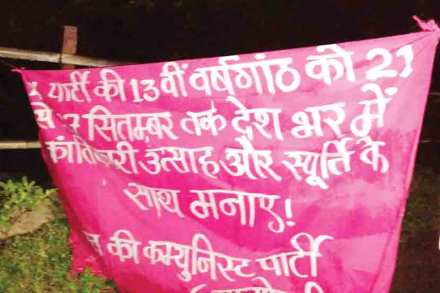 पार्टी की 13वीं वर्षगांठ को 21
सितम्बर तक देश भर में
उत्साह और स्फूर्ति के
साथ मनाए!
की कम्युनिस्ट पार्टी